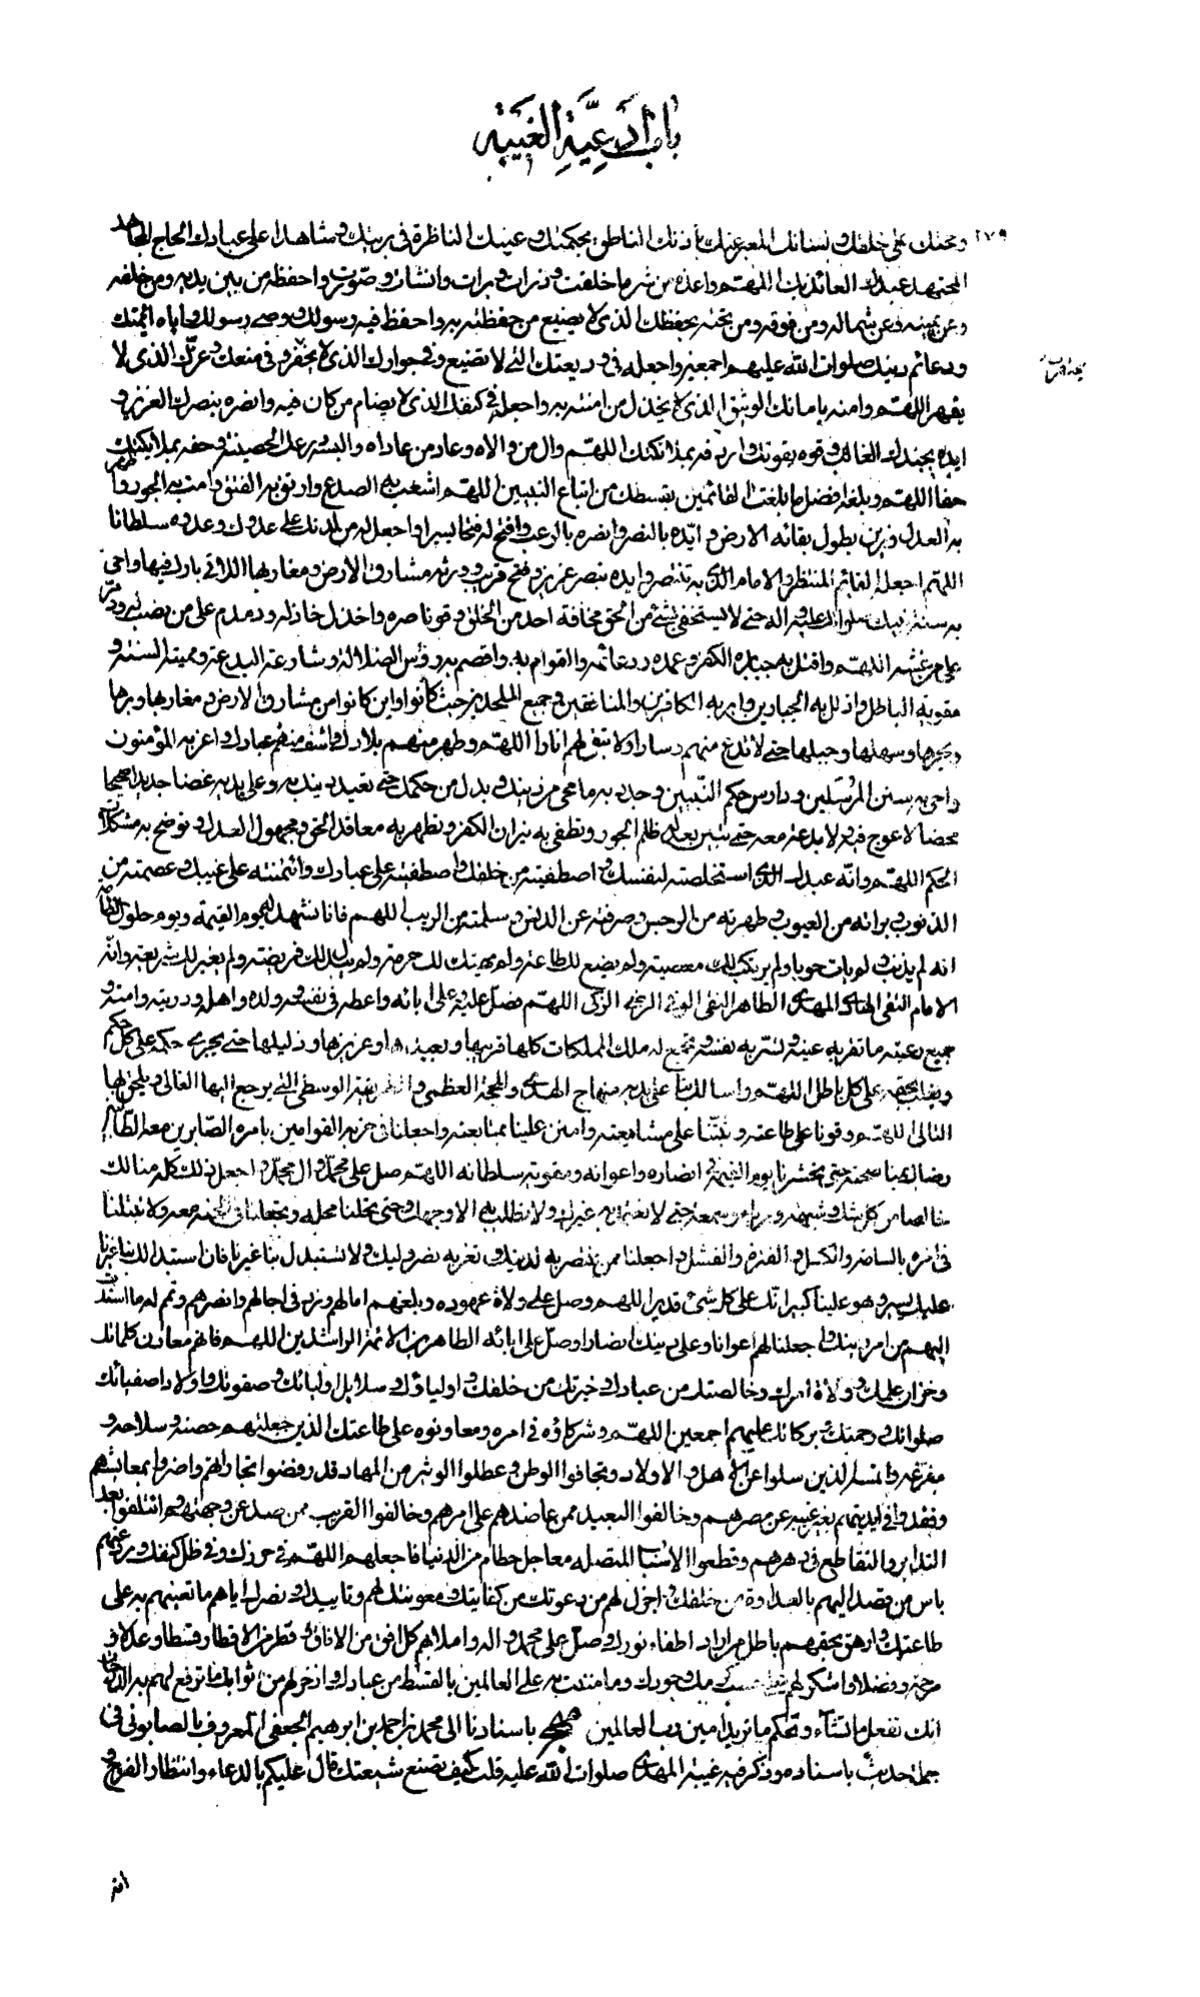 باب ادعية الغيبة
٢٧٩
وحجتك على خلقك ولسانك المعبر عنك باذنك الناطق بحكمتك وعينك الناظرة فى بريتك وشاهدا على عبادك الحجاج المجاهد
المجتهد عبدك العائذ بك اللهم واعذه من شر ما خلقت وذرات وبرات وانشات وصورت واحفظه من بين يديه ومن خلفه
وعن يمينه وعن شماله ومن فوقه ومن تحته بحفظك الذى لا يضيع من حفظته به واحفظ فيه رسولك ووصى رسولك واباه ائمتك
ودعائم دينك صلوات الله عليهم اجمعين واجعله فى وديعتك التى لا تضيع وفى جوارك الذى لا يخفر وفى منعك وعزك الذى لا
يقهر اللهم وامنه بامانك الوثيق الذى لا يخذل من امنته به واجعله فى كنفك الذى لا يضام من كان فيه وانصره بنصرك العزيز و
ايده بجندك الغالب وقوه بقوتك واردفه بملائكتك اللهم وال من والاه وعاد من عاداه والبسه درعك الحصينة وحفه بملائكتك
حفا اللهم وبلغه افضل ما بلغت القائمين بقسطك من اتباع النبيين اللهم اشعب به الصدع وارتق به الفتق وامت به الجور واظهر
به العدل وزين بطول بقائه الارض وايده بالنصر وانصره بالرعب وافتح له فتحا يسيرا واجعل له من لدنك على عدوك وعدوه سلطانا
اللهم اجعله القائم المنتظر والامام الذى به تنتصر وايده بنصر عزيز وفتح قريب وورثه مشارق الارض ومغاربها اللاتى باركت فيها واحى
به سنة نبيك صلواتك عليه واله حتى لا يستخفى بشئ من الحق مخافة احد من الخلق وقو ناصره واخذل خاذله ودمدم على من نصب له ودمر
على من غشه اللهم واقتل به جبابرة الكفر وعمده ودعائمه والقوام به واقصم به رؤس الضلالة وشارعة البدعة ومميتة السنة و
مقوية الباطل واذلل به الجبارين وابر به الكافرين والمنافقين وجميع الملحدين حيث كانوا واين كانوا من مشارق الارض ومغاربها وبرها
وبحرها وسهلها وجبلها حتى لا تدع منهم ديارا ولا تبقى لهم اثارا اللهم وطهر منهم بلادك واشف منهم عبادك واعز به المؤمنون
واحى به سنن المرسلين ودارس حكم النبيين وجدد به ما محى من دينك وبدل من حكمك حتى تعيد دينك به وعلى يديه غضا جديدا صحيحا
محضا لا عوج فيه ولا بدعة معه حتى تنير بعدله ظلم الجور وتطفى به نيران الكفر وتظهر به معاقد الحق ومجهول العدل وتوضح به مشكلات
الحكم اللهم وانه عبدك الذى استخلصته لنفسك واصطفيته من خلقك واصطفيته على عبادك وائتمنته على غيبك وعصمته من
الذنوب وبراته من العيوب وطهرته من الرجس وصرفته عن الدنس وسلمته من الريب اللهم فانا نشهد له يوم القيمة ويوم حلول الطامة
انه لم يذنب ولم يات حوبا ولم يرتكب لك معصية ولم يضيع لك طاعة ولم يهتك لك حرمة ولم يبدل لك فريضة ولم يغير لك شريعة وانه
الامام التقى الهادى المهدى الطاهر التقى الوفى الرضى الزكى اللهم فصل عليه وعلى ابائه واعطه فى نفسه وولده واهله وذريته وامته و
جميع رعيته ما تقر به عينه وتسر به نفسه وتجمع له ملك المملكات كلها قريبها وبعيدها وعزيزها وذليلها حتى يجرى حكمه على كل حكم
ويغلب بحقه على كل باطل اللهم واسلك بنا على يديه منهاج الهدى والمحجة العظمى والطريقة الوسطى التى يرجع اليها الغالى ويلحق بها
التالى اللهم وقونا على طاعته وثبتنا على مشايعته وامنن علينا بمتابعته واجعلنا فى حزبه القوامين بامره الصابرين معه الطالبين
رضاك بمناصحته حتى تحشرنا يوم القيمة فى انصاره واعوانه ومقوية سلطانه اللهم صل على محمد وال محمد واجعل ذلك كله منا لك
خالصا من كل شك وشبهة ورياء وسمعة حتى لا نعتمد به غيرك ولا نطلب به الا وجهك وحتى تحلنا محله وتجعلنا فى الجنة معه ولا تبتلنا
فى امره بالسامة والكسل والفترة والفشل واجعلنا ممن تنتصر به لدينك وتعز به نصر وليك ولا تستبدل بنا غيرنا فان استبدالك بنا غيرنا
عليك يسير وهو علينا كبير انك على كل شئ قدير اللهم وصل على ولاة عهوده وبلغهم امالهم وزد فى اجالهم وانصرهم وتمم له ما اسندت
اليهم من امر دينك واجعلنا لهم اعوانا وعلى دينك انصارا وصل على ابائه الطاهرين الائمة الراشدين اللهم فانهم معادن كلماتك
وخزان علمك وولاة امرك وخالصتك من عبادك وخيرتك من خلقك واوليائك وسلائل اوليائك وصفوتك واولاد اصفيائك
صلواتك ورحمتك وبركاتك عليهم اجمعين اللهم وشركاؤه فى امره ومعاونوه على طاعتك الذين جعلتهم حصنه وسلاحه و
مفزعه وانسه الذين سلوا عن الاهل والاولاد وتجافوا الوطن وعطلوا الوثير من المهاد قد رفضوا تجاراتهم واضروا بمعايشهم
وفقدوا فى انديتهم بغير غيبة عن مصرهم وحالفوا البعيد ممن عاضدهم على امرهم وخالفوا القريب ممن صد عن وجهتهم وائتلفوا بعد
التدابر والتقاطع فى دهرهم وقطعوا الاسباب المتصلة بعاجل حطام من الدنيا فاجعلهم اللهم فى حرزك وفى ظل كنفك ورد عنهم
باس من قصد اليهم بالعداوة من خلقك واجزل لهم من دعوتك من كفايتك ومعونتك لهم وتاييدك ونصرك اياهم ما تعينهم به على
طاعتك وازهق بحقهم باطل من اراد اطفاء نورك وصل على محمد واله واملا بهم كل افق من الافاق وقطر من الاقطار قسطا وعدلا و
مرحمة وفضلا واشكر لهم كرمك وجودك وما مننت به على العالمين بالقسط من عبادك واذخر لهم من ثوابك ما ترفع لهم به الدرجات
انك تفعل ما تشاء وتحكم ما تريد امين رب العالمين باسنادنا الى محمد بن احمد بن ابرهيم الجعفى المعروف بالصابونى فى
جملة حديث باسناده وذكر فيه غيبة المهدى صلوات الله عليه قلت كيف تصنع شيعتك قال عليكم بالدعاء وانتظار الفرج